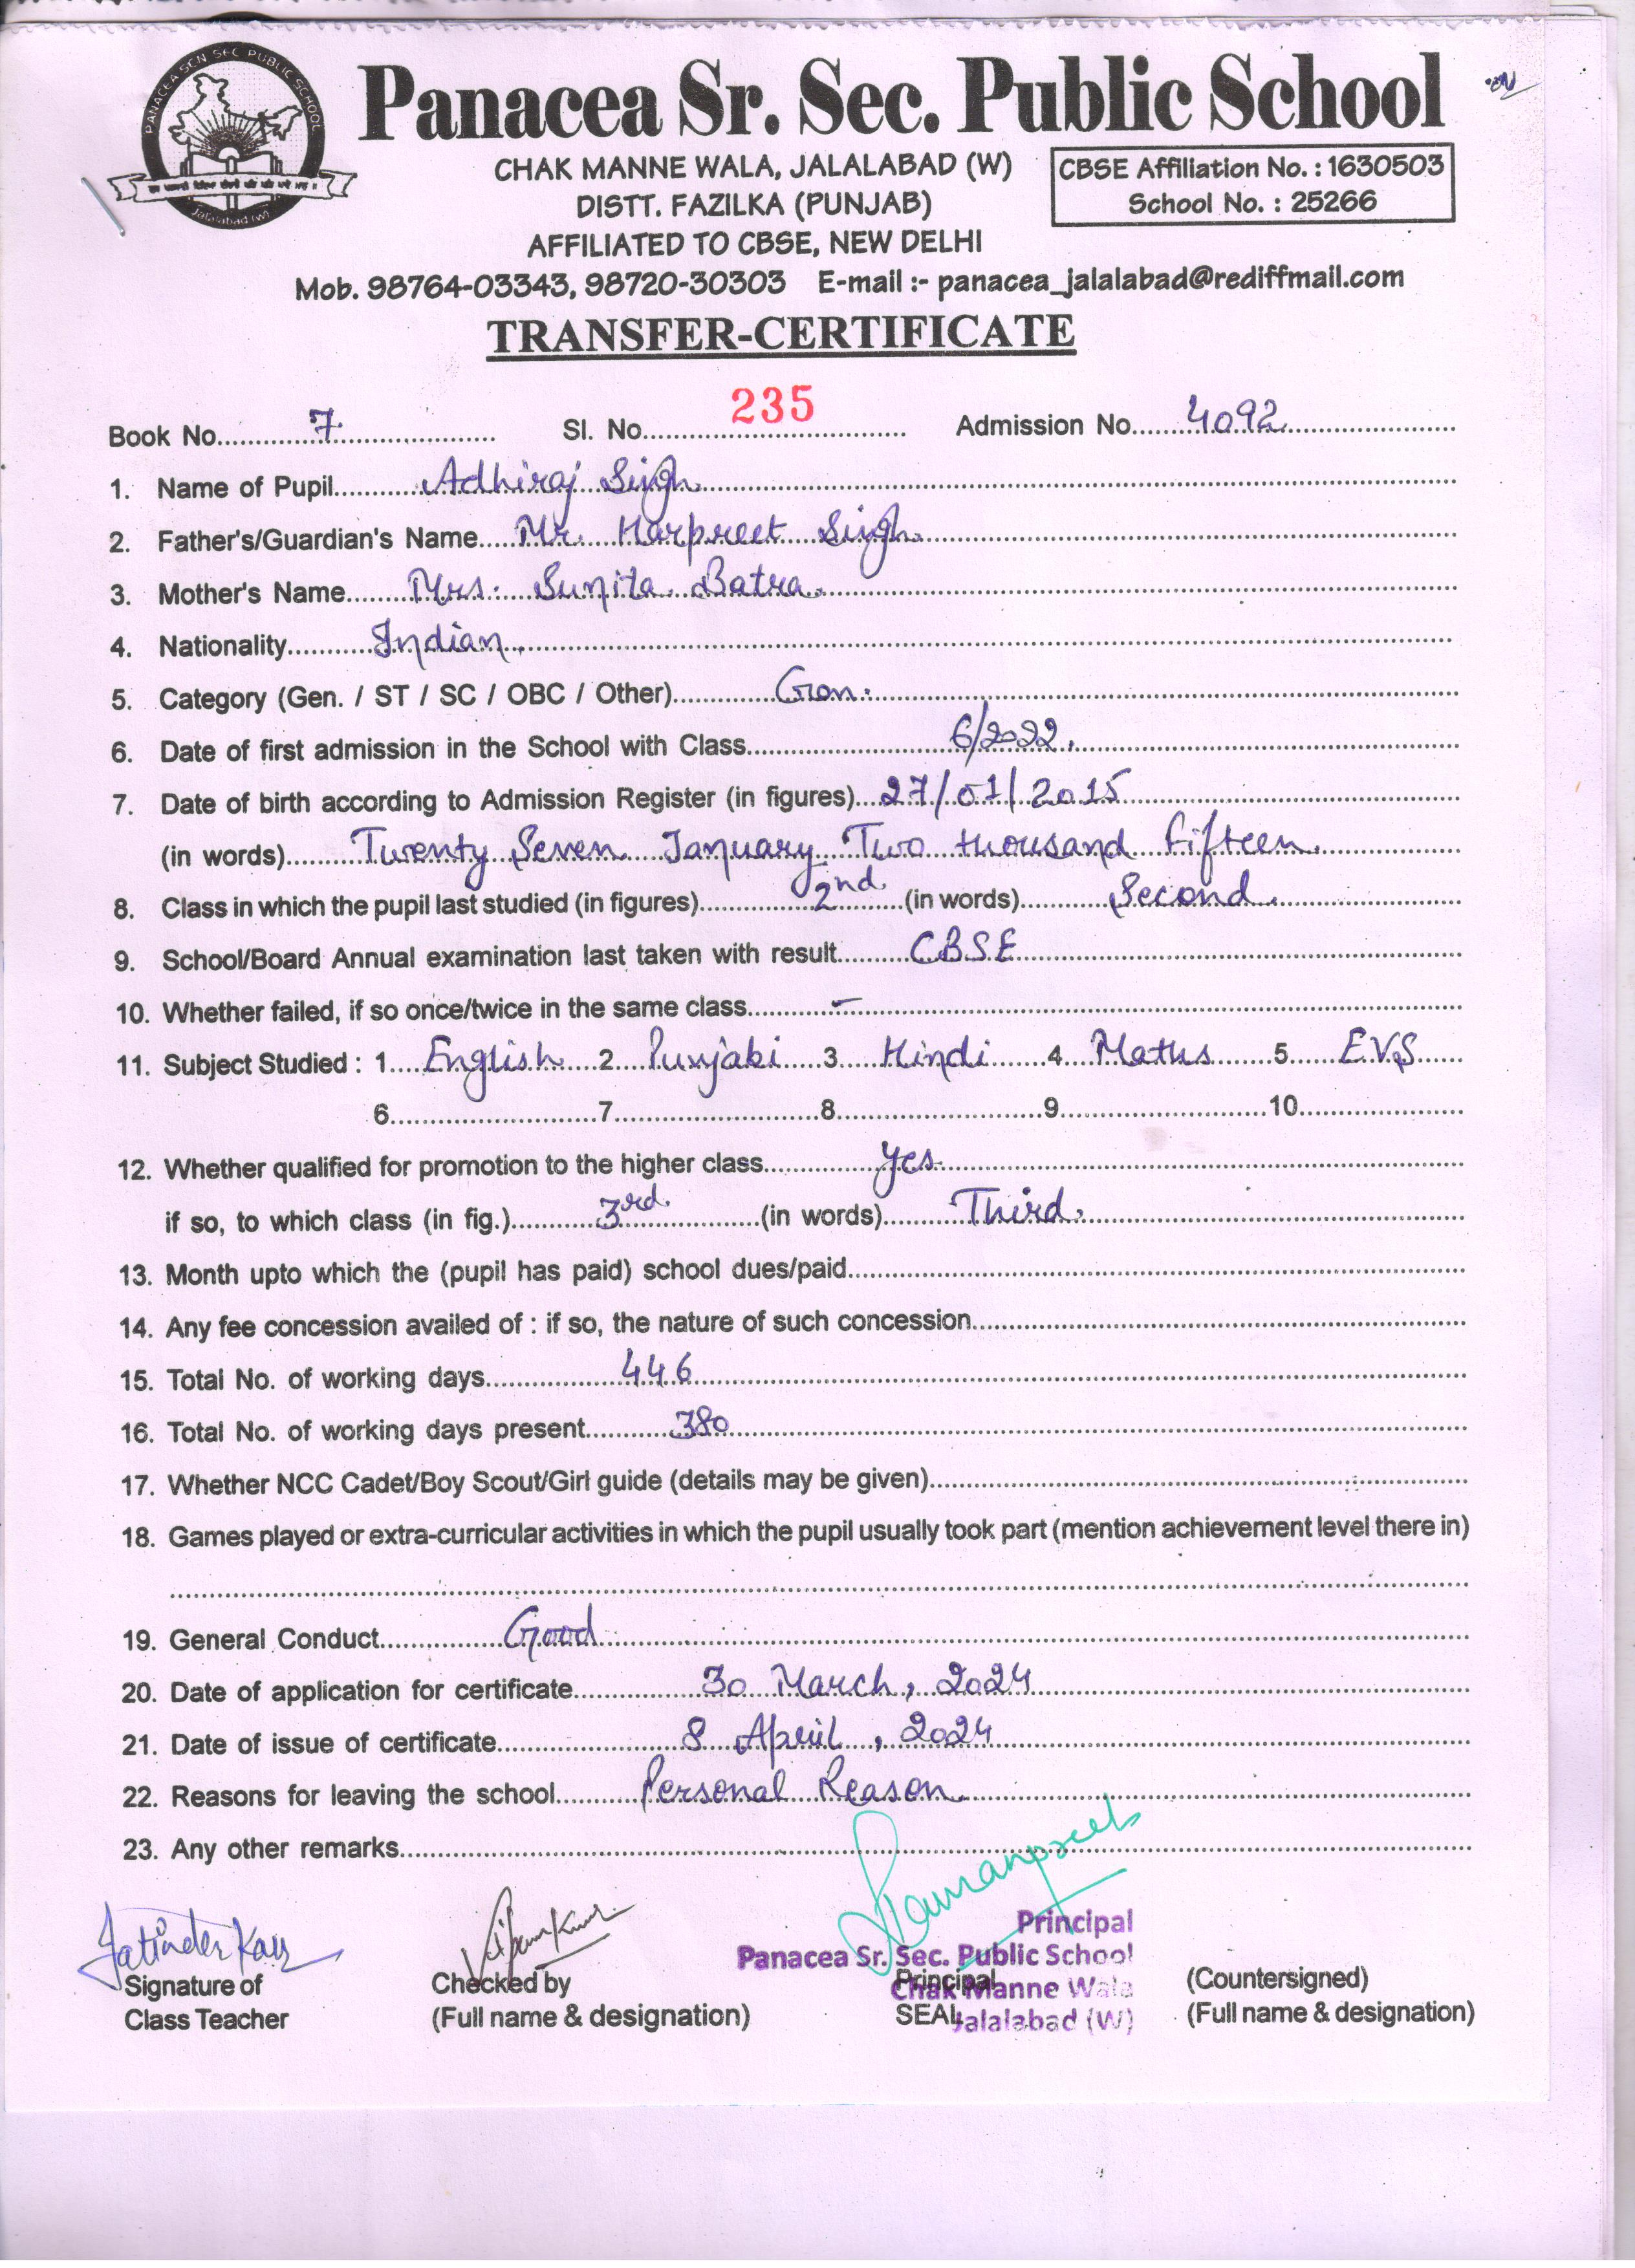 PANACEA SCN SEC PUBLIC SCHOOL
Jalalabad (W)
Panacea Sr. Sec. Public School
CHAK MANNE WALA, JALALABAD (W)
DISTT. FAZILKA (PUNJAB)
AFFILIATED TO CBSE, NEW DELHI
CBSE Affiliation No. : 1630503
School No. : 25266
Mob. 98764-03343, 98720-30303 E-mail :- panacea_jalalabad@rediffmail.com
TRANSFER-CERTIFICATE
Book No. 7 Sl. No. 235 Admission No. 4092
1. Name of Pupil Adhiraj Singh
2. Father's/Guardian's Name Mr. Harpreet Singh
3. Mother's Name Mrs. Sunita Batra
4. Nationality Indian
5. Category (Gen. / ST / SC / OBC / Other) Gen.
6. Date of first admission in the School with Class 6/2022
7. Date of birth according to Admission Register (in figures) 27/01/2015
(in words) Twenty Seven January Two thousand Fifteen
8. Class in which the pupil last studied (in figures) 2nd (in words) Second
9. School/Board Annual examination last taken with result CBSE
10. Whether failed, if so once/twice in the same class –
11. Subject Studied : 1. English 2. Punjabi 3. Hindi 4. Maths 5. EVS
6. 7. 8. 9. 10.
12. Whether qualified for promotion to the higher class yes
if so, to which class (in fig.) 3rd (in words) Third
13. Month upto which the (pupil has paid) school dues/paid
14. Any fee concession availed of : if so, the nature of such concession
15. Total No. of working days 446
16. Total No. of working days present 380
17. Whether NCC Cadet/Boy Scout/Girl guide (details may be given)
18. Games played or extra-curricular activities in which the pupil usually took part (mention achievement level there in)
19. General Conduct Good
20. Date of application for certificate 30 March, 2024
21. Date of issue of certificate 8 April, 2024
22. Reasons for leaving the school Personal Reason
23. Any other remarks
Jatinder Kaur
Signature of
Class Teacher
Checked by
(Full name & designation)
Principal
Panacea Sr. Sec. Public School
Chak Manne Wala
Jalalabad (W)
Principal
SEAL
(Countersigned)
(Full name & designation)